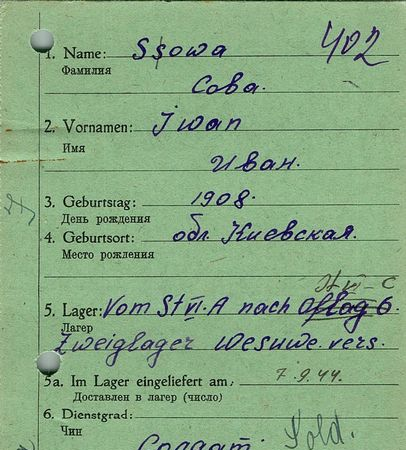 402
1. Name: Ssowa
Фамилия
Сова.
2. Vornamen: Jwan
Имя
Иван.
3. Geburtstag: 1908.
День рождения
4. Geburtsort: обл. Киевская.
Место рождения
St VI-C
5. Lager: Vom St VI.A nach Oflag 6.
Лагер
Zweiglager Wesuwe. vers.
5a. Im Lager eingeliefert am: 7.9.44.
Доставлен в лагер (число)
6. Dienstgrad:
Чин
Солдат. Sold.